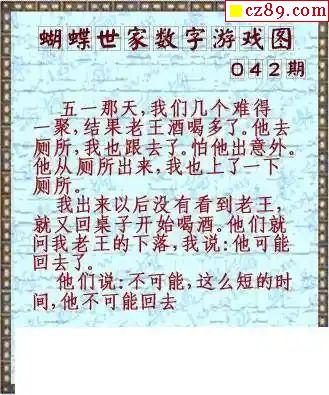 cz89.com
蝴蝶世家数字游戏图
042期
五一那天,我们几个难得
一聚,结果老王酒喝多了。他去
厕所,我也跟去了。怕他出意外。
他从厕所出来,我也上了一下
厕所。
我出来以后没有看到老王,
就又回桌子开始喝酒。他们就
问我老王的下落,我说:他可能
回去了。
他们说:不可能,这么短的时
间,他不可能回去